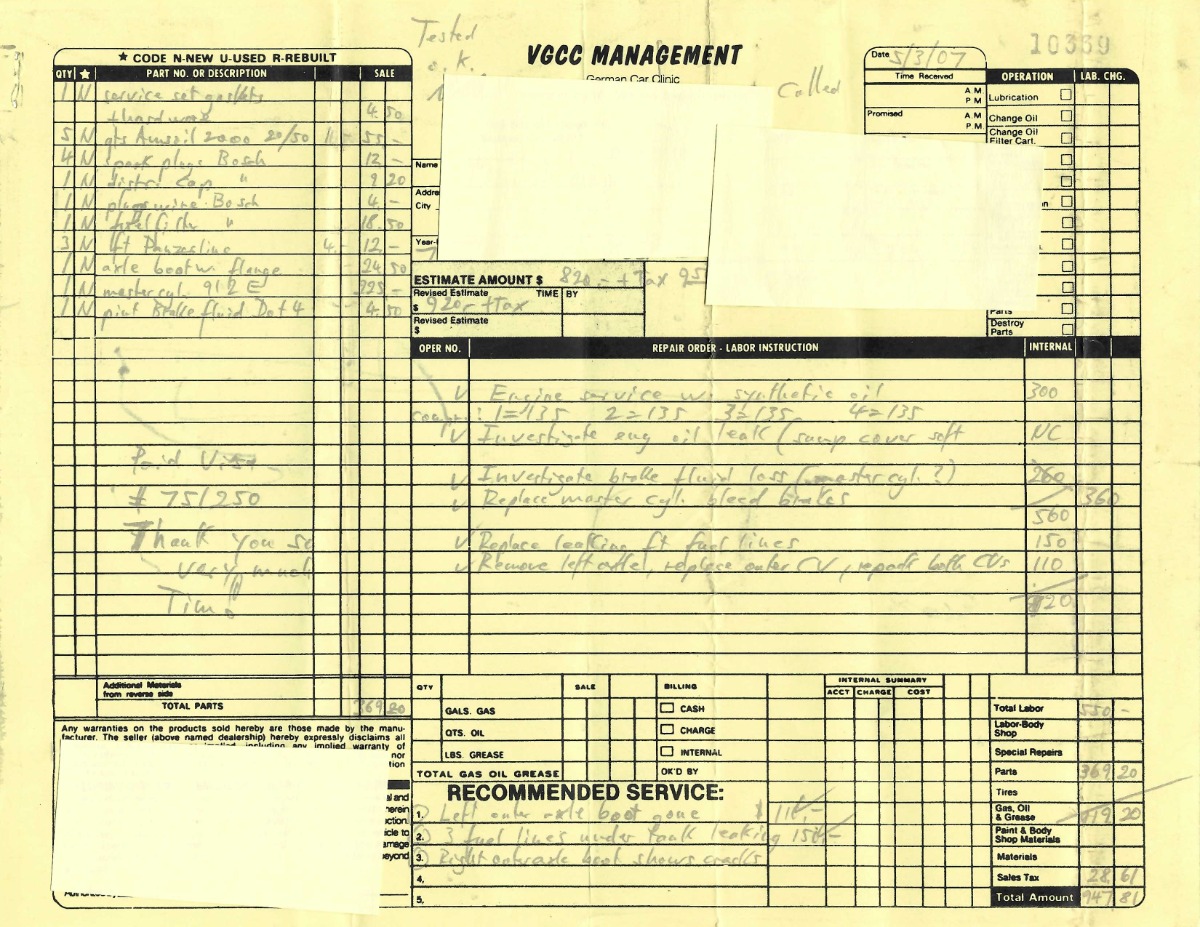 Tested
o.k.
Called
VGCC MANAGEMENT
German Car Clinic
Date 5/3/07
10339
Time Received
A M
P M
Promised
A M
P M
OPERATION LAB. CHG.
Lubrication
Change Oil
Change Oil
Filter Cart.
Parts
Destroy
Parts
★ CODE N-NEW U-USED R-REBUILT
QTY ★ PART NO. OR DESCRIPTION SALE
1 N service set gaskets
+ hardware 4.50
5 N qts Amsoil 2000 20/50 11 - 55 -
4 N spark plugs Bosch 12 -
1 N distri Cap " 9 20
1 N plugwire Bosch 4. -
1 N fuel filter " 18.50
3 N ft Panzerline 4.- 12.-
1 N axle boot w. flange 24 50
1 N master cyl. 912 E 225 -
1 N pint Brake fluid Dot 4 4.50
Paid Visa
# 75/250
Thank you so
very much
Tim!
Additional Materials
from reverse side
TOTAL PARTS 369 20
Name
City
ESTIMATE AMOUNT $ 820.- + Tax
Revised Estimate TIME BY
$ 920.- + Tax
Revised Estimate
$
OPER NO. REPAIR ORDER - LABOR INSTRUCTION INTERNAL
✓ Engine service w. synthetic oil 300
compr.: 1=135 2=135 3=135 4=135
✓ Investigate eng oil leak (sump cover soft NC
✓ Investigate brake fluid loss (master cyl.?) 260
✓ Replace master cyl. bleed brakes 360
560
✓ Replace leaking ft fuel lines 150
✓ Remove left axle, replace outer CV, repack both CVs 110
Any warranties on the products sold hereby are those made by the manu-
facturer. The seller (above named dealership) hereby expressly disclaims all
any implied warranty of
nor
QTY SALE BILLING
GALS. GAS
QTS. OIL
LBS. GREASE
TOTAL GAS OIL GREASE
CASH
CHARGE
INTERNAL
OK'D BY
INTERNAL SUMMARY
ACCT CHARGE COST
RECOMMENDED SERVICE:
1. Left outer axle boot gone $ 110.-
2. 3 fuel lines under tank leaking 150.-
3. Right outer axle boot shows cracks
4.
5.
Total Labor 550 -
Labor-Body
Shop
Special Repairs
Parts 369 20
Tires
Gas, Oil
& Grease 919 20
Paint & Body
Shop Materials
Materials
Sales Tax 28 61
Total Amount 947 81